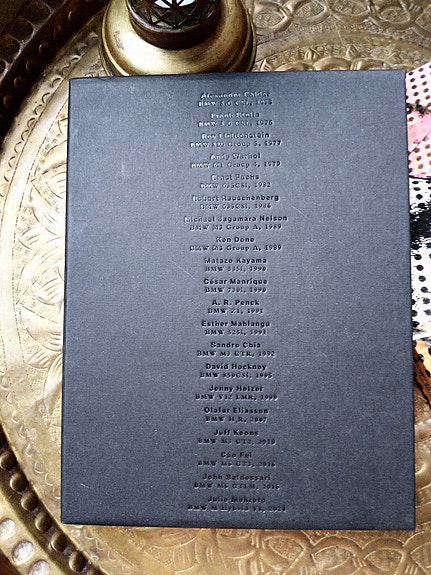 Alexander Calder
BMW 3.0 CSL, 1975
Frank Stella
BMW 3.0 CSL, 1976
Roy Lichtenstein
BMW 320 Group 5, 1977
Andy Warhol
BMW M1 Group 4, 1979
Ernst Fuchs
BMW 635CSi, 1982
Robert Rauschenberg
BMW 635CSi, 1986
Michael Jagamara Nelson
BMW M3 Group A, 1989
Ken Done
BMW M3 Group A, 1989
Matazo Kayama
BMW 535i, 1990
César Manrique
BMW 730i, 1990
A. R. Penck
BMW Z1, 1991
Esther Mahlangu
BMW 525i, 1991
Sandro Chia
BMW M3 GTR, 1992
David Hockney
BMW 850CSi, 1995
Jenny Holzer
BMW V12 LMR, 1999
Olafur Eliasson
BMW H₂R, 2007
Jeff Koons
BMW M3 GT2, 2010
Cao Fei
BMW M6 GT3, 2016
John Baldessari
BMW M6 GTLM, 2016
Julie Mehretu
BMW M Hybrid V8, 2024